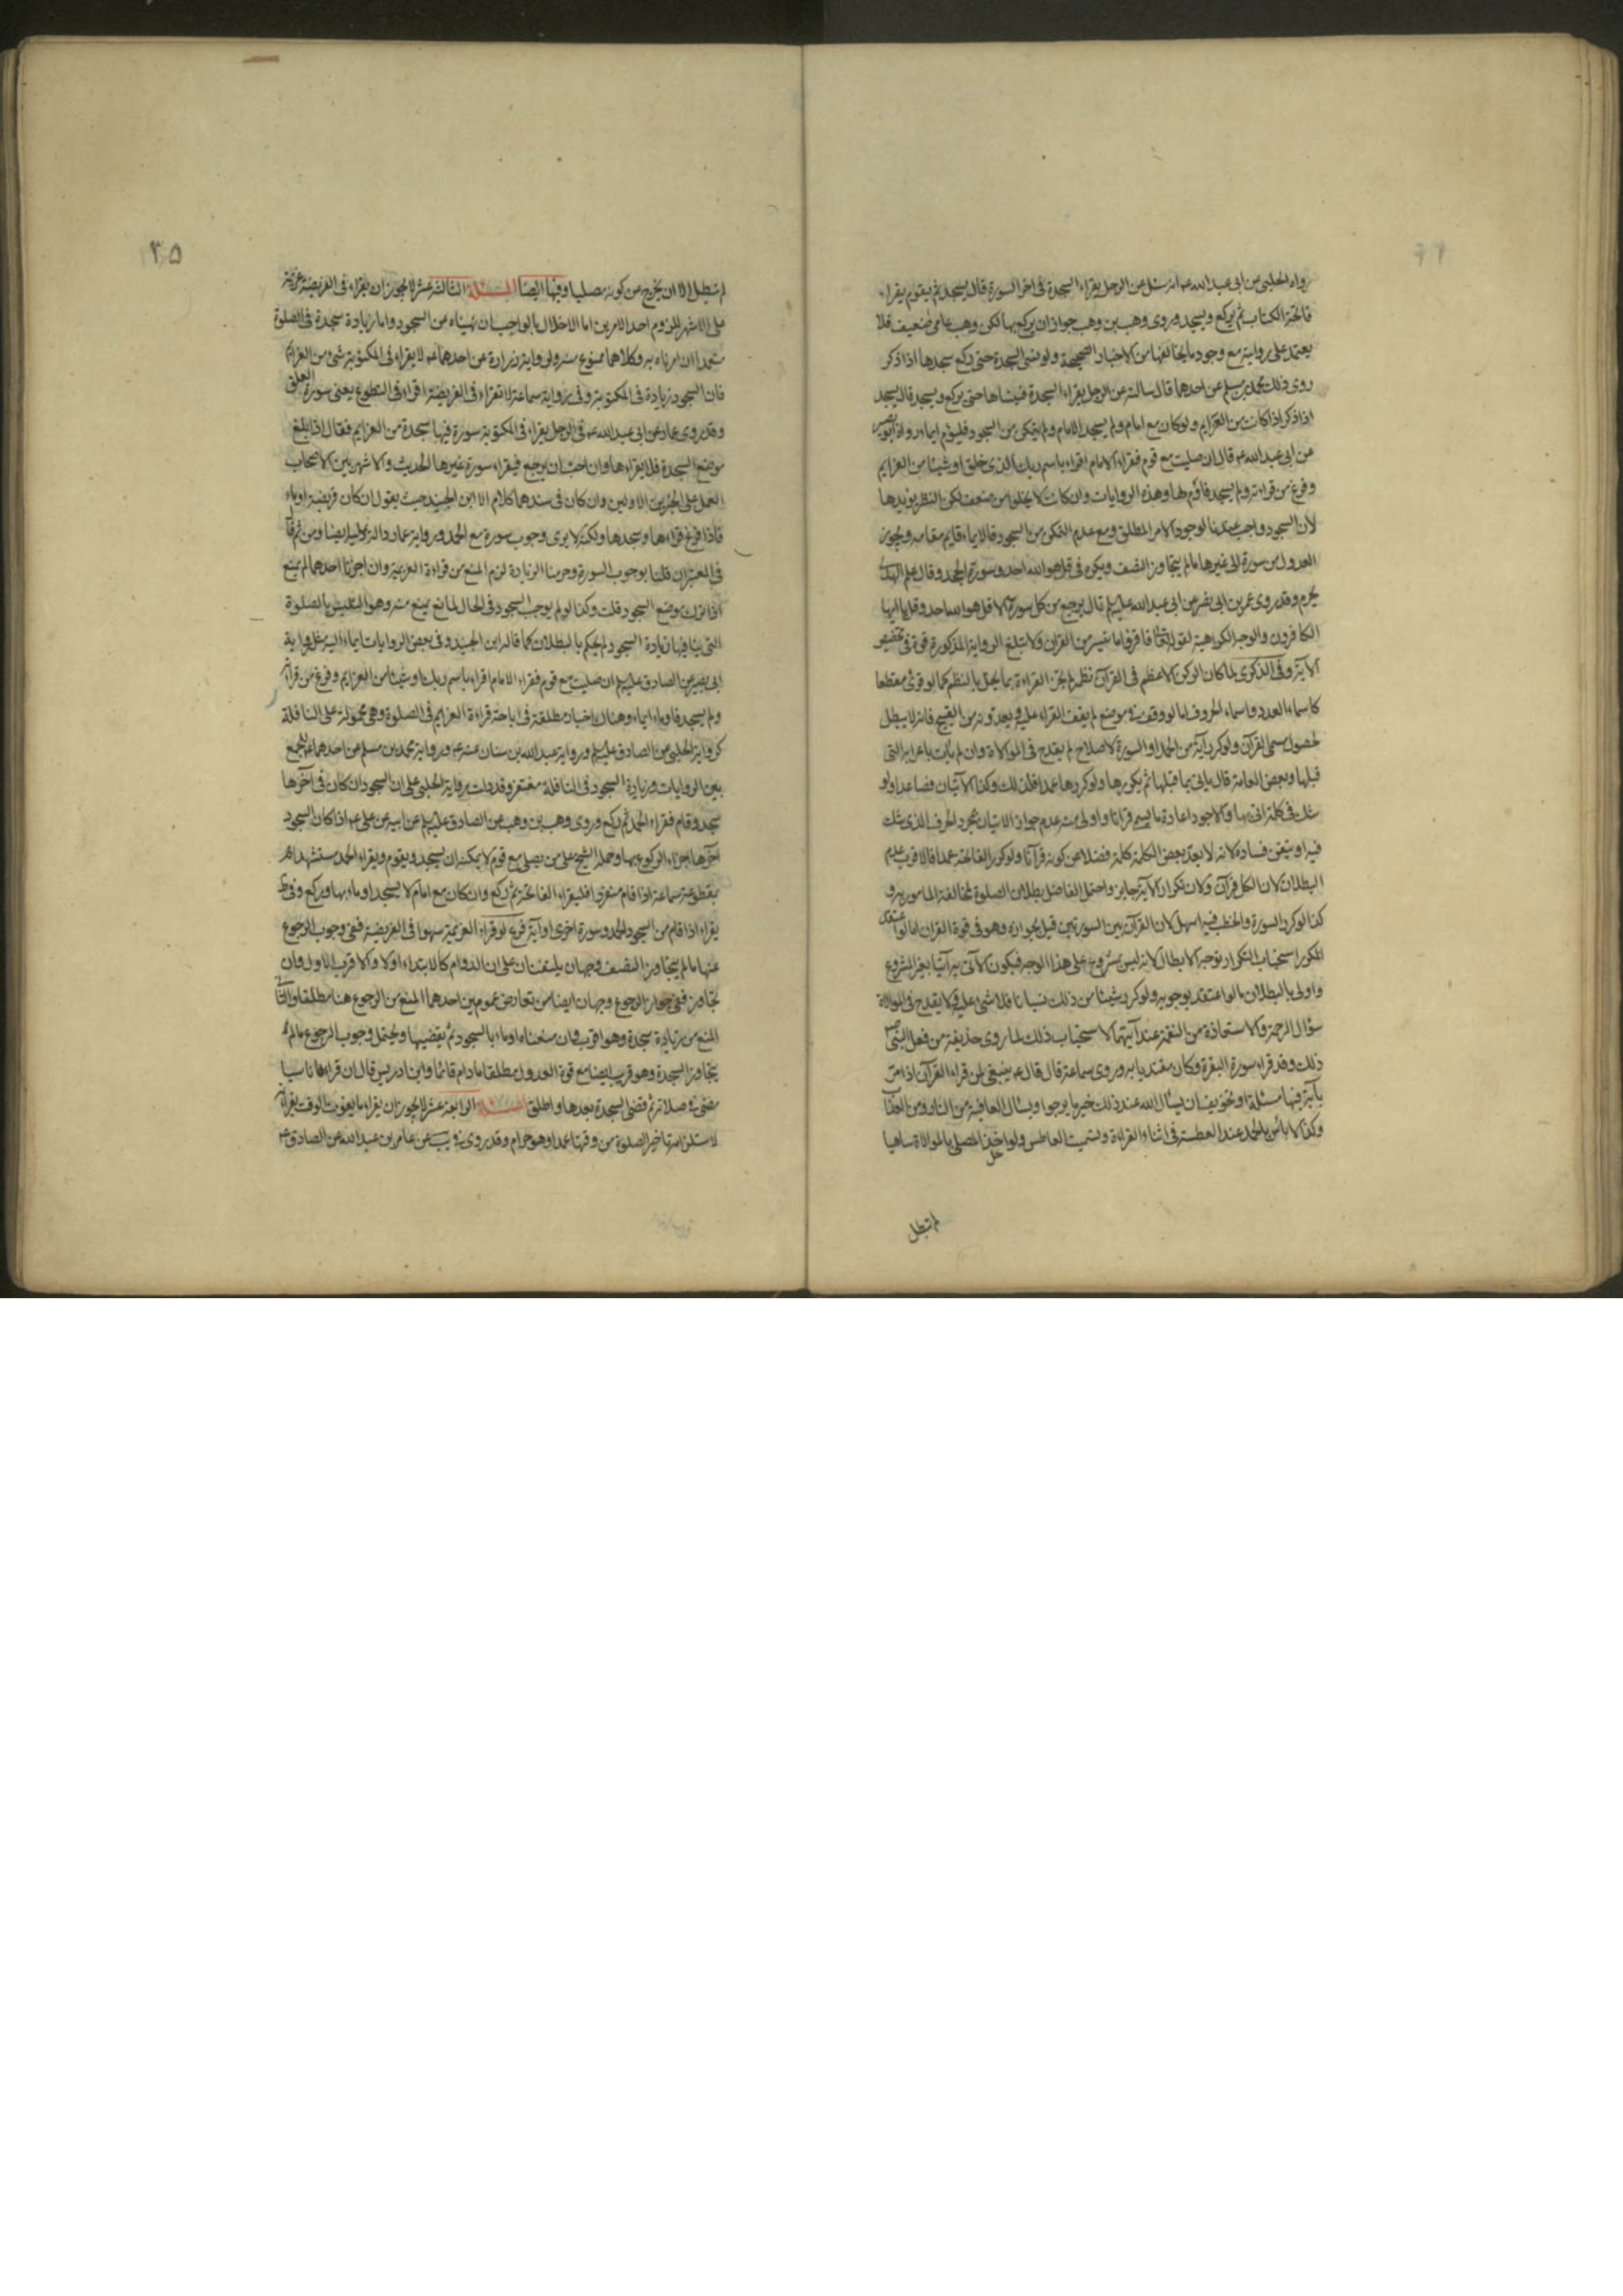 رواه الحلبي عن ابي عبد الله عم انه سئل عن الرجل يقراء السجدة في اخر السورة قال يسجد ثم يقوم يقراء
فاتحة الكتاب ثم يركع ويسجد وروى وهب بن وهب جواز ان يركع بها لكن وهب عامي ضعيف فلا
يعتمد على روايته مع وجود ما يخالفها من الاخبار الصحيحة ولو نسى السجدة حتى ركع سجدها اذا ذكر
روى ذلك محمد بن مسلم عن احدهما قال سالته عن الرجل يقراء السجدة فينساها حتى يركع ويسجد قال يسجد
اذا ذكر اذا كانت من العزايم ولو كان مع امام ولم يسجد الامام ولم يتمكن من السجود فليؤم ايماء رواه ابو بصير
عن ابي عبد الله عم قال ان صليت مع قوم فقراء الامام اقراء باسم ربك الذي خلق او شيئا من العزايم
وفرغ من قراءته ولم يسجد فاؤم لها وهذه الروايات وان كانت لا يخلو من ضعف لكن النظر يؤيدها
لان السجود واجب عندنا لوجود الامر المطلق ومع عدم التمكن من السجود فالايماء قايم مقامه ويجوز
العدول من سورة الى غيرها ما لم يتجاوز النصف ويكره في قل هو الله احد وسورة الجحد وقال علم الهدى
يحرم وقد روى عمر بن ابي نصر عن ابي عبد الله عليه السلم قال يرجع من كل سورة الا قل هو الله احد وقل يا ايها
الكافرون والوجه الكراهية لقوله تعالى فاقرؤا ما تيسر من القران ولا تبلغ الرواية المذكورة قوة في تخصيص
الآية وفي الذكرى لما كان الركن الاعظم في القرآن نظمه لم يجز القراءة بما يخل بالنظم كما لو قرئ مقطعا
كاسماء العدد واسماء الحروف اما لو وقف في موضع لم يقف القراء عليه ويعدونه من القبيح فانه لا يبطل
لحصول مسمى القرآن ولو كرر آية من الحمد او السورة لاصلاح لم يقدح في الموالاة وان لم يات باعرابه التي
قبلها وبعض العامة قال ياتي بما قبلها ثم يكررها ولو كررها عمدا فكذلك وكذا الآيتان فصاعدا ولو
شك في كلمة اتى بها والاجود اعادة ما يسمى قرانا واولى منه عدم جواز الاتيان بمجرد الحرف الذي شك
فيه او تيقن فساده لانه لا يعد بعض الكلمة كلمة فضلا عن كونه قرآنا ولو كرر الفاتحة عمدا فالاقرب عدم
البطلان لان الكل قرآن ولان تكرار الآية جايز واحتمل الفاضل بطلان الصلوة لمخالفة المامور به و
كذا لو كرر السورة والخطب فيه اسهل لان القرآن بين السورتين قيل بجوازه وهو في قوة القران اما لو اعتقد
المكرر استحباب التكرار توجه الابطال لانه ليس بمشروع على هذا الوجه فيكون الآتي به آتيا بغير المشروع
واولى بالبطلان ما لو اعتقد وجوبه ولو كرر شيئا من ذلك نسيانا فلا شئ عليه ولا يقدح في الموالاة
سؤال الرحمة والاستعاذة من النقمة عند آيتهما لاستحباب ذلك لما روى حذيفة من فعل النبي ص
ذلك وقد قراء سورة البقرة وكان مقتديا به وروى سماعة قال قال عم ينبغي لمن قراء القرآن اذا مر
بآية فيها مسئلة او تخويف ان يسال الله عند ذلك خير ما يرجوا ويسال العافية من النار ومن العذاب
وكذا لا باس بالحمد عند العطسة في اثناء القراءة وتسميت العاطس ولو اخل المصلي بالموالاة ساهيا
لم تبطل
٣٥
لم تبطل الا ان يخرج عن كونه مصليا وفيها ايضا المسئلة الثالثة عشر لا يجوز ان يقراء في الفريضة عزيمة
على الاشهر للزوم احد الامرين اما الاخلال بالواجب ان نهيناه عن السجود واما زيادة سجدة في الصلوة
متعمدا ان امرناه به وكلاهما ممنوع منه ولرواية زرارة عن احدهما عم لا يقراء في المكتوبة شئ من العزايم
فان السجود زيادة في المكتوبة وفي رواية سماعة لا تقراء في الفريضة اقراء في التطوع يعني سورة العلق
وقد روى عمار عن ابي عبد الله عم في الرجل يقراء في المكتوبة سورة فيها سجدة من العزايم فقال اذا بلغ
موضع السجدة فلا يقراءها وان احب ان يرجع فيقراء سورة غيرها الحديث والاشهر بين الاصحاب
العمل على الخبرين الاولين وان كان في سندهما كلام الا ابن الجنيد حيث يقول ان كان فريضة اوماء
فاذا فرغ قراءها وسجدها ولكنه لا يرى وجوب سورة مع الحمد ورواية عمار دالة عليه ايضا ومن ثم قال
في المعتبر ان قلنا بوجوب السورة وحرمنا الزيادة لزم المنع من قراءة العزيمة وان اجزنا احدهما لم يمنع
اذا ترك موضع السجود قلت وكذا لو لم يوجب السجود في الحال لمانع يمنع منه وهو التلبس بالصلوة
التي ينافيها زيادة السجود لم يحكم بالبطلان كما قاله ابن الجنيد وفي بعض الروايات ايماء اليه مثل رواية
ابي بصير عن الصادق عليه السلم ان صليت مع قوم فقراء الامام اقراء باسم ربك او شيئا من العزايم وفرغ من قراءته
ولم يسجد فاوماء ايماء وهناك اخبار مطلقة في اباحة قراءة العزايم في الصلوة وهي محمولة على النافلة
كرواية الحلبي عن الصادق عليه السلم ورواية عبد الله بن سنان عنه عم ورواية محمد بن مسلم عن احدهما عم للجمع
بين الروايات وزيادة السجود في النافلة مغتفر وقد دلت رواية الحلبي على ان السجود ان كان في آخرها
سجد وقام فقراء الحمد ثم ركع وروى وهب بن وهب عن الصادق عليه السلم عن ابيه عن علي عم اذا كان السجود
آخرها اجزاء الركوع بها وحمله الشيخ على من يصلي مع قوم لا يمكنه ان يسجد ويقوم ويقراء الحمد مستشهدا
بمقطوعة سماعة اذا قام منفردا فليقراء الفاتحة ثم ركع وان كان مع امام لا يسجد اوماء بها وركع وفي ط
يقراء اذا قام من السجود الحمد وسورة اخرى او آية فرع لو قراء العزيمة سهوا في الفريضة ففي وجوب الرجوع
عنها ما لم يتجاوز النصف وجهان يلتفتان على ان الدوام كالابتداء اولا والاقرب الاول وان
تجاوز ففي جواز الرجوع وجهان ايضا من تعارض عمومين احدهما المنع من الرجوع هنا مطلقا والثاني
المنع من زيادة سجدة وهو اقرب وان منعناه اوماء بالسجود ثم يقضيها ويحتمل وجوب الرجوع ما لم
يتجاوز السجدة وهو قريب ايضا مع قوة العدول مطلقا ما دام قائما وابن ادريس قال ان قراءها ناسيا
مضى في صلاته ثم قضى السجدة بعدها واطلق المسئلة الرابعة عشر لا يجوز ان يقراء ما يفوت الوقت بقراءته
لاستلزامه تاخير الصلوة عن وقتها عمدا وهو حرام وقد روى في يب عن عامر بن عبد الله عن الصادق عم